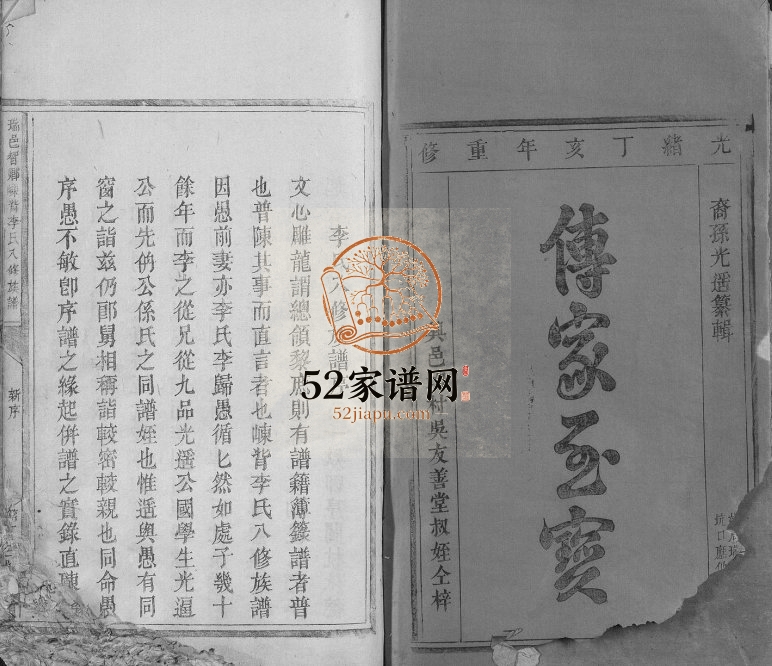 光緒丁亥年重修
裔孫光遥纂輯
傳家至寶
吳友善堂叔姪仝梓
坑口
李
八修族譜
文心雕龍謂總領黎庶則有譜籍簿籙譜者普
也普陳其事而直言者也崠背李氏八修族譜
因愚前妻亦李氏李歸愚循匕然如處子幾十
餘年而李之從兄從九品光遥公國學生光逼
公而先仍公係氏之同譜姪也惟遥與愚有同
窗之誼玆仍郎舅相稱誼較密較親也同命愚
序愚不敏卽序譜之緣起併譜之實錄直陳
瑞邑智鄉崠背李氏八修族譜
新序
52家谱网
52jiapu.com